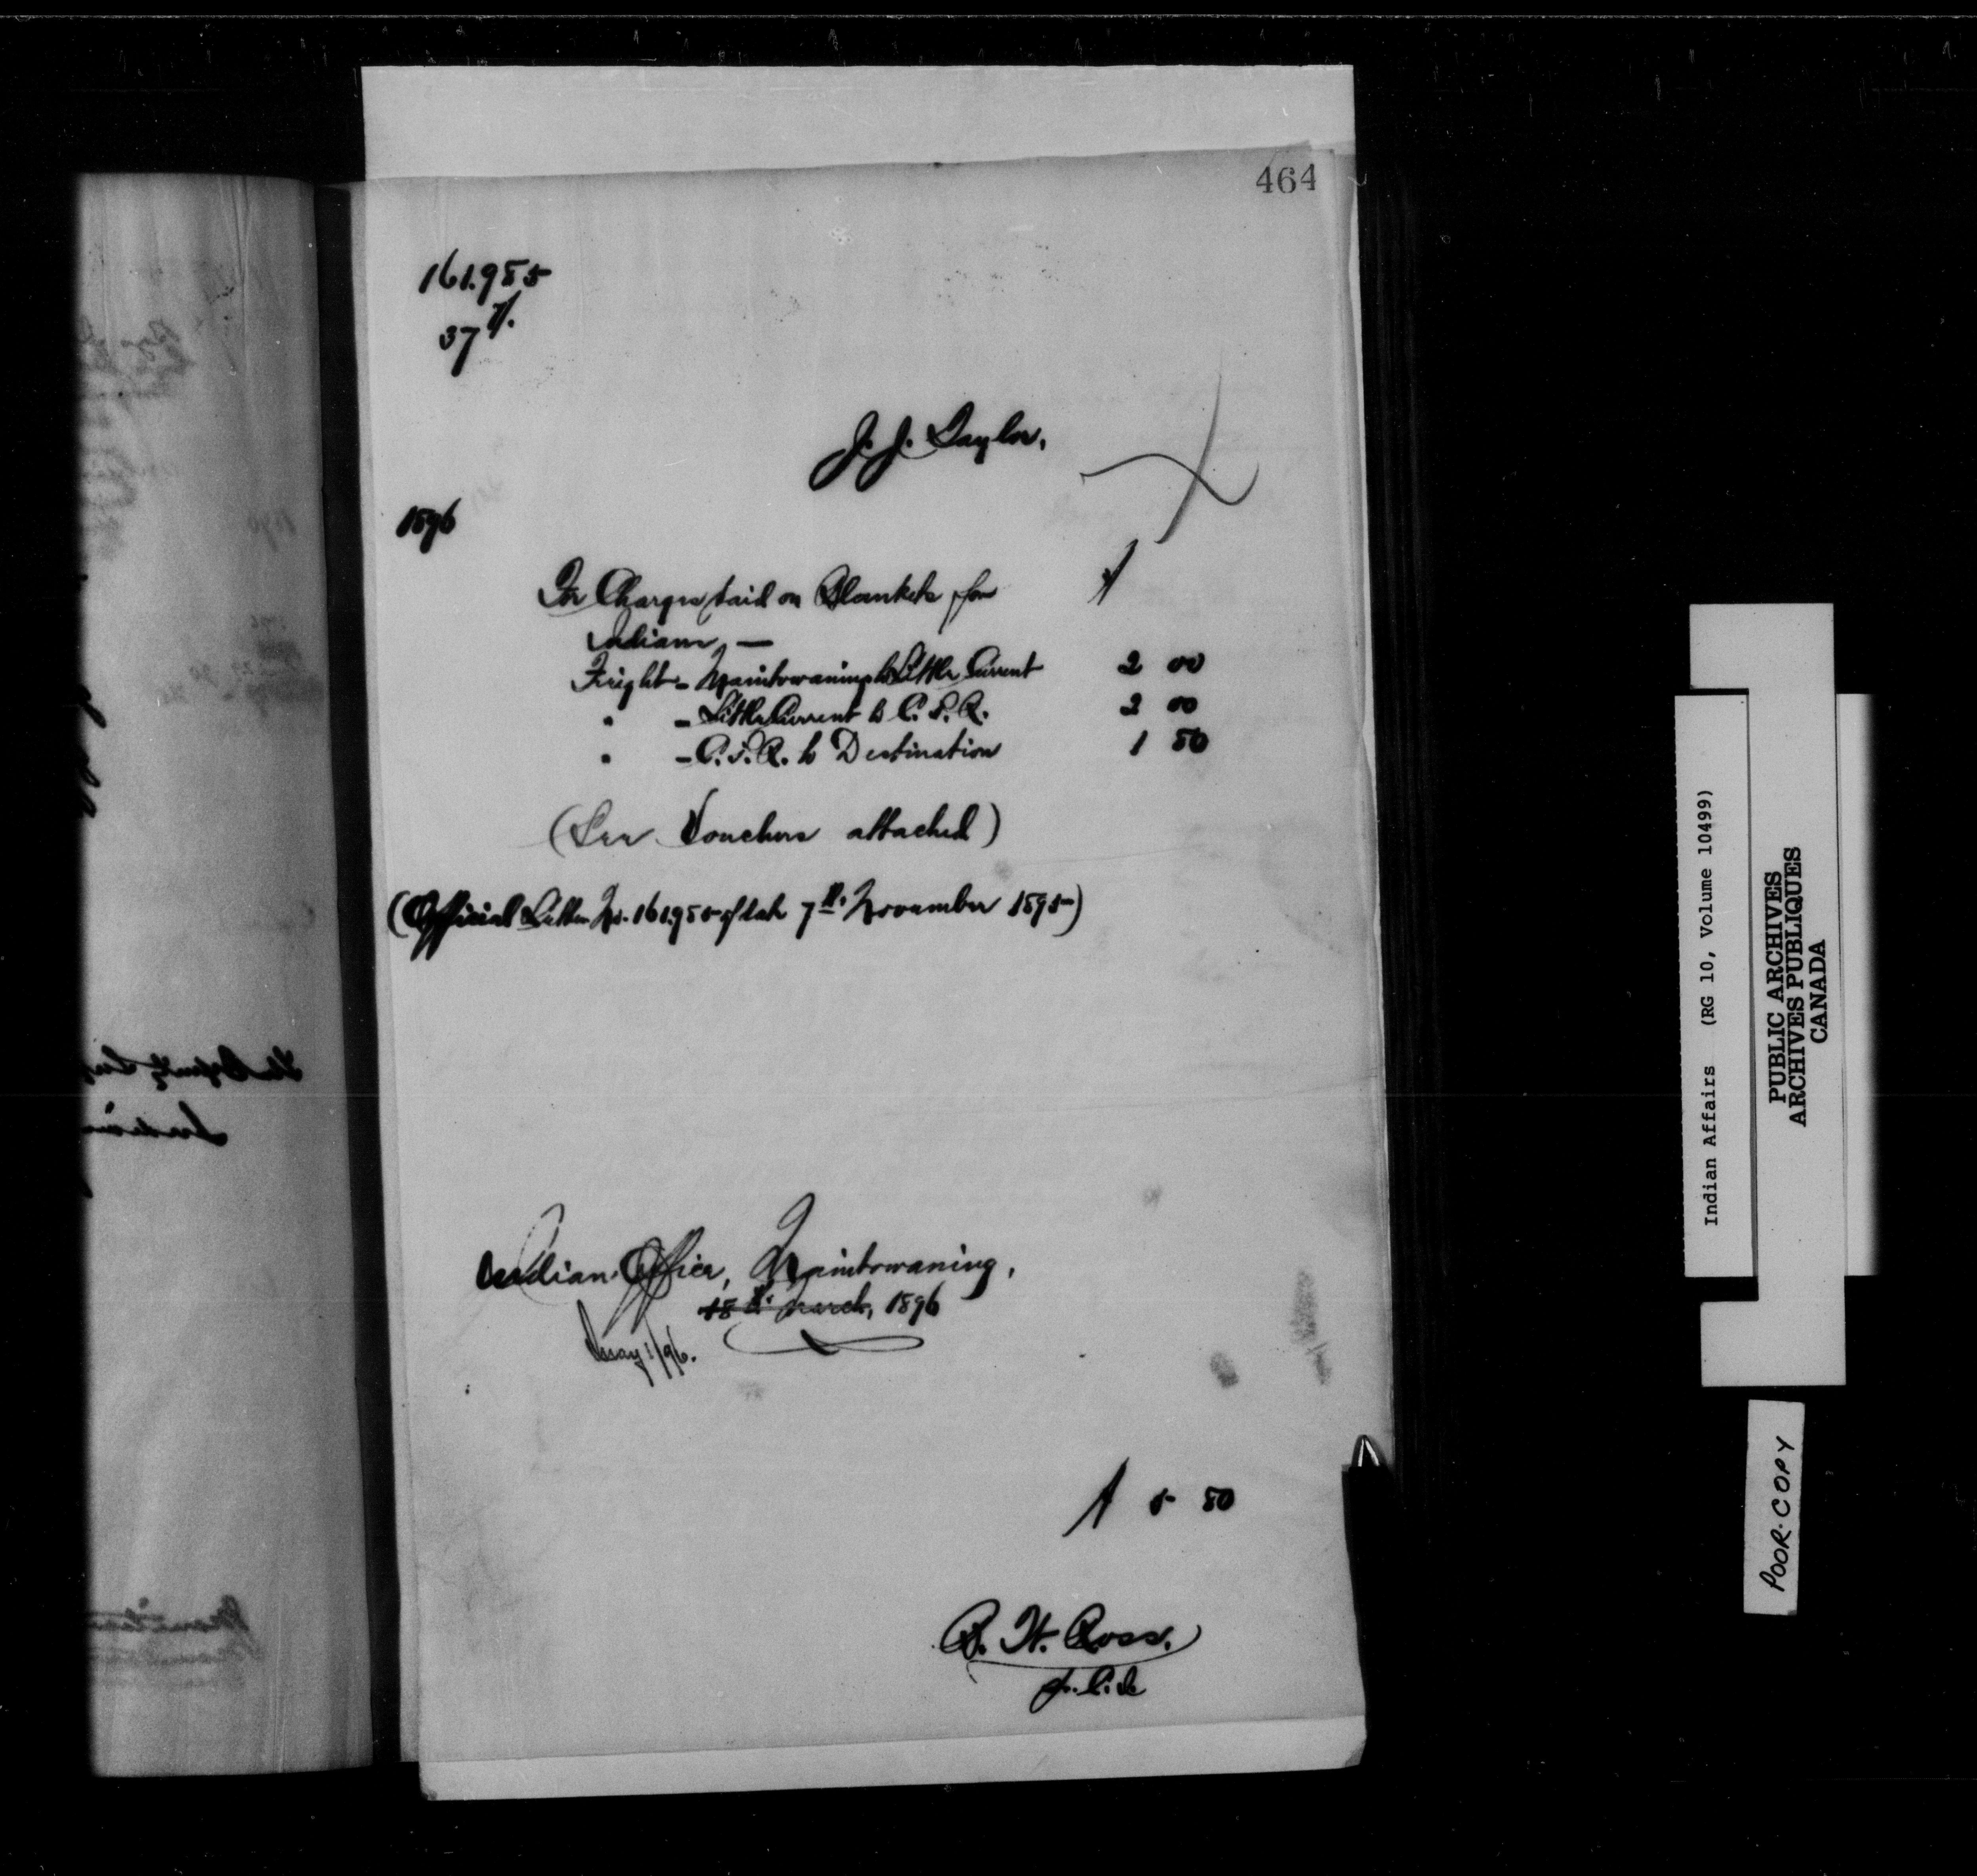 464
161.955
37
J. J. Taylor.
1896
For Charges paid on Blankets for $
Indians, —
Freight - Manitowaning to Little Current 2 00
" - Little Current to C. P. R. 2 00
" - C. P. R. to Destination 1 50
(See Vouchers attached)
(Official Letter No. 161.955 of date 7th. November 1895)
Indian Office, Manitowaning,
18th. March, 1896
May 1/96.
$ 5 50
B. W. Ross.
Indian Affairs (RG 10, Volume 10499)
PUBLIC ARCHIVES
ARCHIVES PUBLIQUES
CANADA
POOR COPY